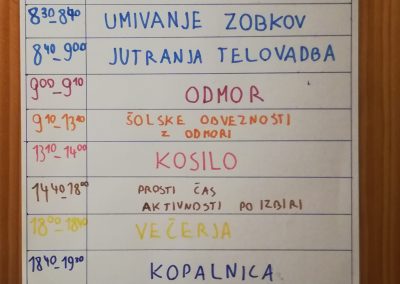 8³⁰-8⁴⁰ UMIVANJE ZOBKOV
8⁴⁰-9⁰⁰ JUTRANJA TELOVADBA
9⁰⁰-9¹⁰ ODMOR
9¹⁰-13¹⁰ ŠOLSKE OBVEZNOSTI
Z ODMORI
13¹⁰-14⁰⁰ KOSILO
14⁴⁰-18⁰⁰ PROSTI ČAS
AKTIVNOSTI PO IZBIRI
18⁰⁰-18⁴⁰ VEČERJA
18⁴⁰-19²⁰ KOPALNICA